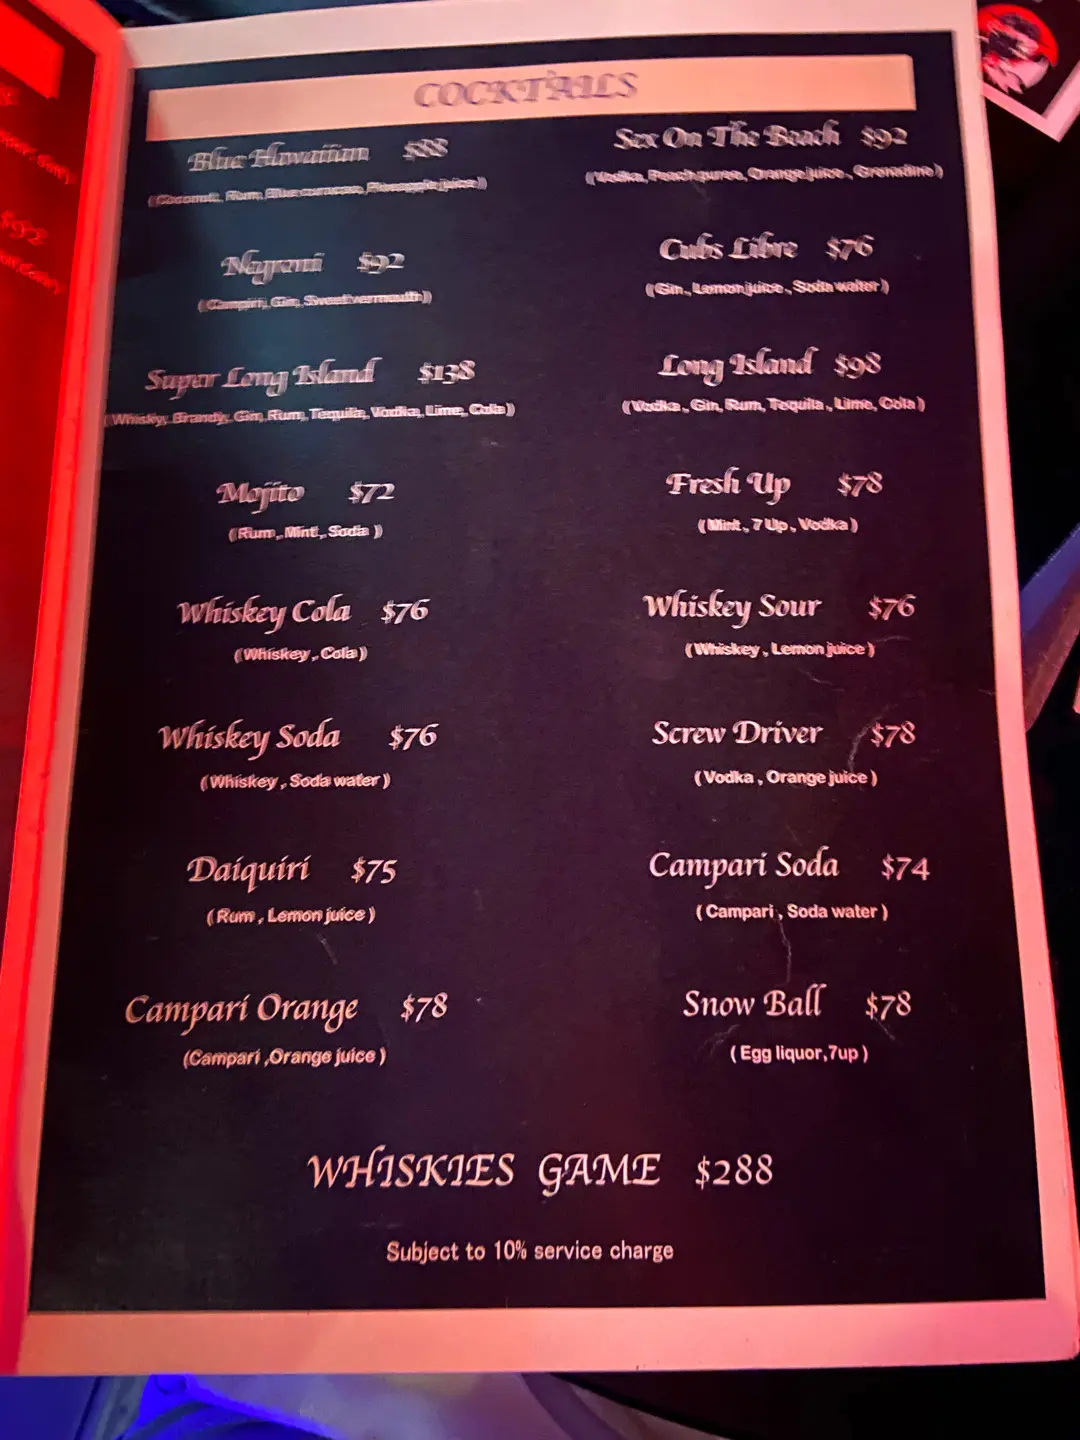 COCKTAILS
Blue Hawaiian $88
(Coconut, Rum, Blue curacao, Pineapple juice)
Sex On The Beach $92
(Vodka, Peach puree, Orange juice, Grenadine)
Negroni $92
(Campiri, Gin, Sweet vermouth)
Cubs Libre $76
(Gin, Lemon juice, Soda walter)
Super Long Island $138
(Whisky, Brandy, Gin, Rum, Tequila, Vodka, Lime, Cola)
Long Island $98
(Vodka, Gin, Rum, Tequila, Lime, Cola)
Mojito $72
(Rum, Mint, Soda)
Fresh Up $78
(Mint, 7 Up, Vodka)
Whiskey Cola $76
(Whiskey, Cola)
Whiskey Sour $76
(Whiskey, Lemon juice)
Whiskey Soda $76
(Whiskey, Soda water)
Screw Driver $78
(Vodka, Orange juice)
Daiquiri $75
(Rum, Lemon juice)
Campari Soda $74
(Campari, Soda water)
Campari Orange $78
(Campari ,Orange juice)
Snow Ball $78
(Egg liquor,7up)
WHISKIES GAME $288
Subject to 10% service charge
$92